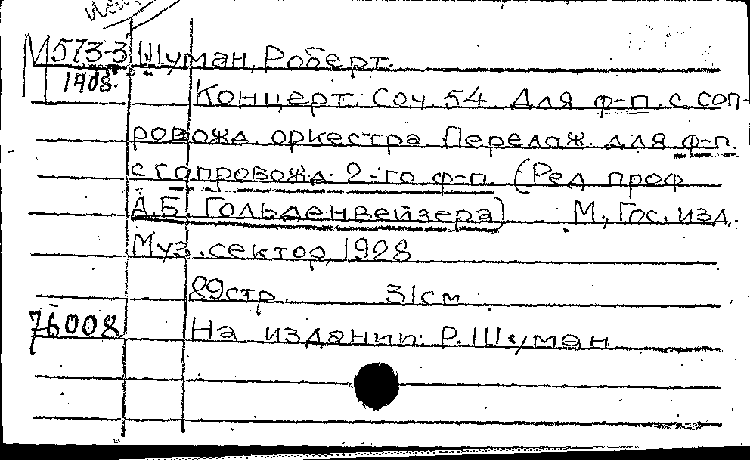 М573-3 Шуман, Роберт.
1908.
Концерт. Соч. 54. Для ф-п. с соп-
ровожд. оркестра. Перелож. для ф-п.
с сопровожд. 2-го ф-п. (Ред. проф.
А.Б. Гольденвейзера) М., Гос. изд.
Муз. сектор, 1928
89стр. 31см.
76008 На издании: Р. Шуман